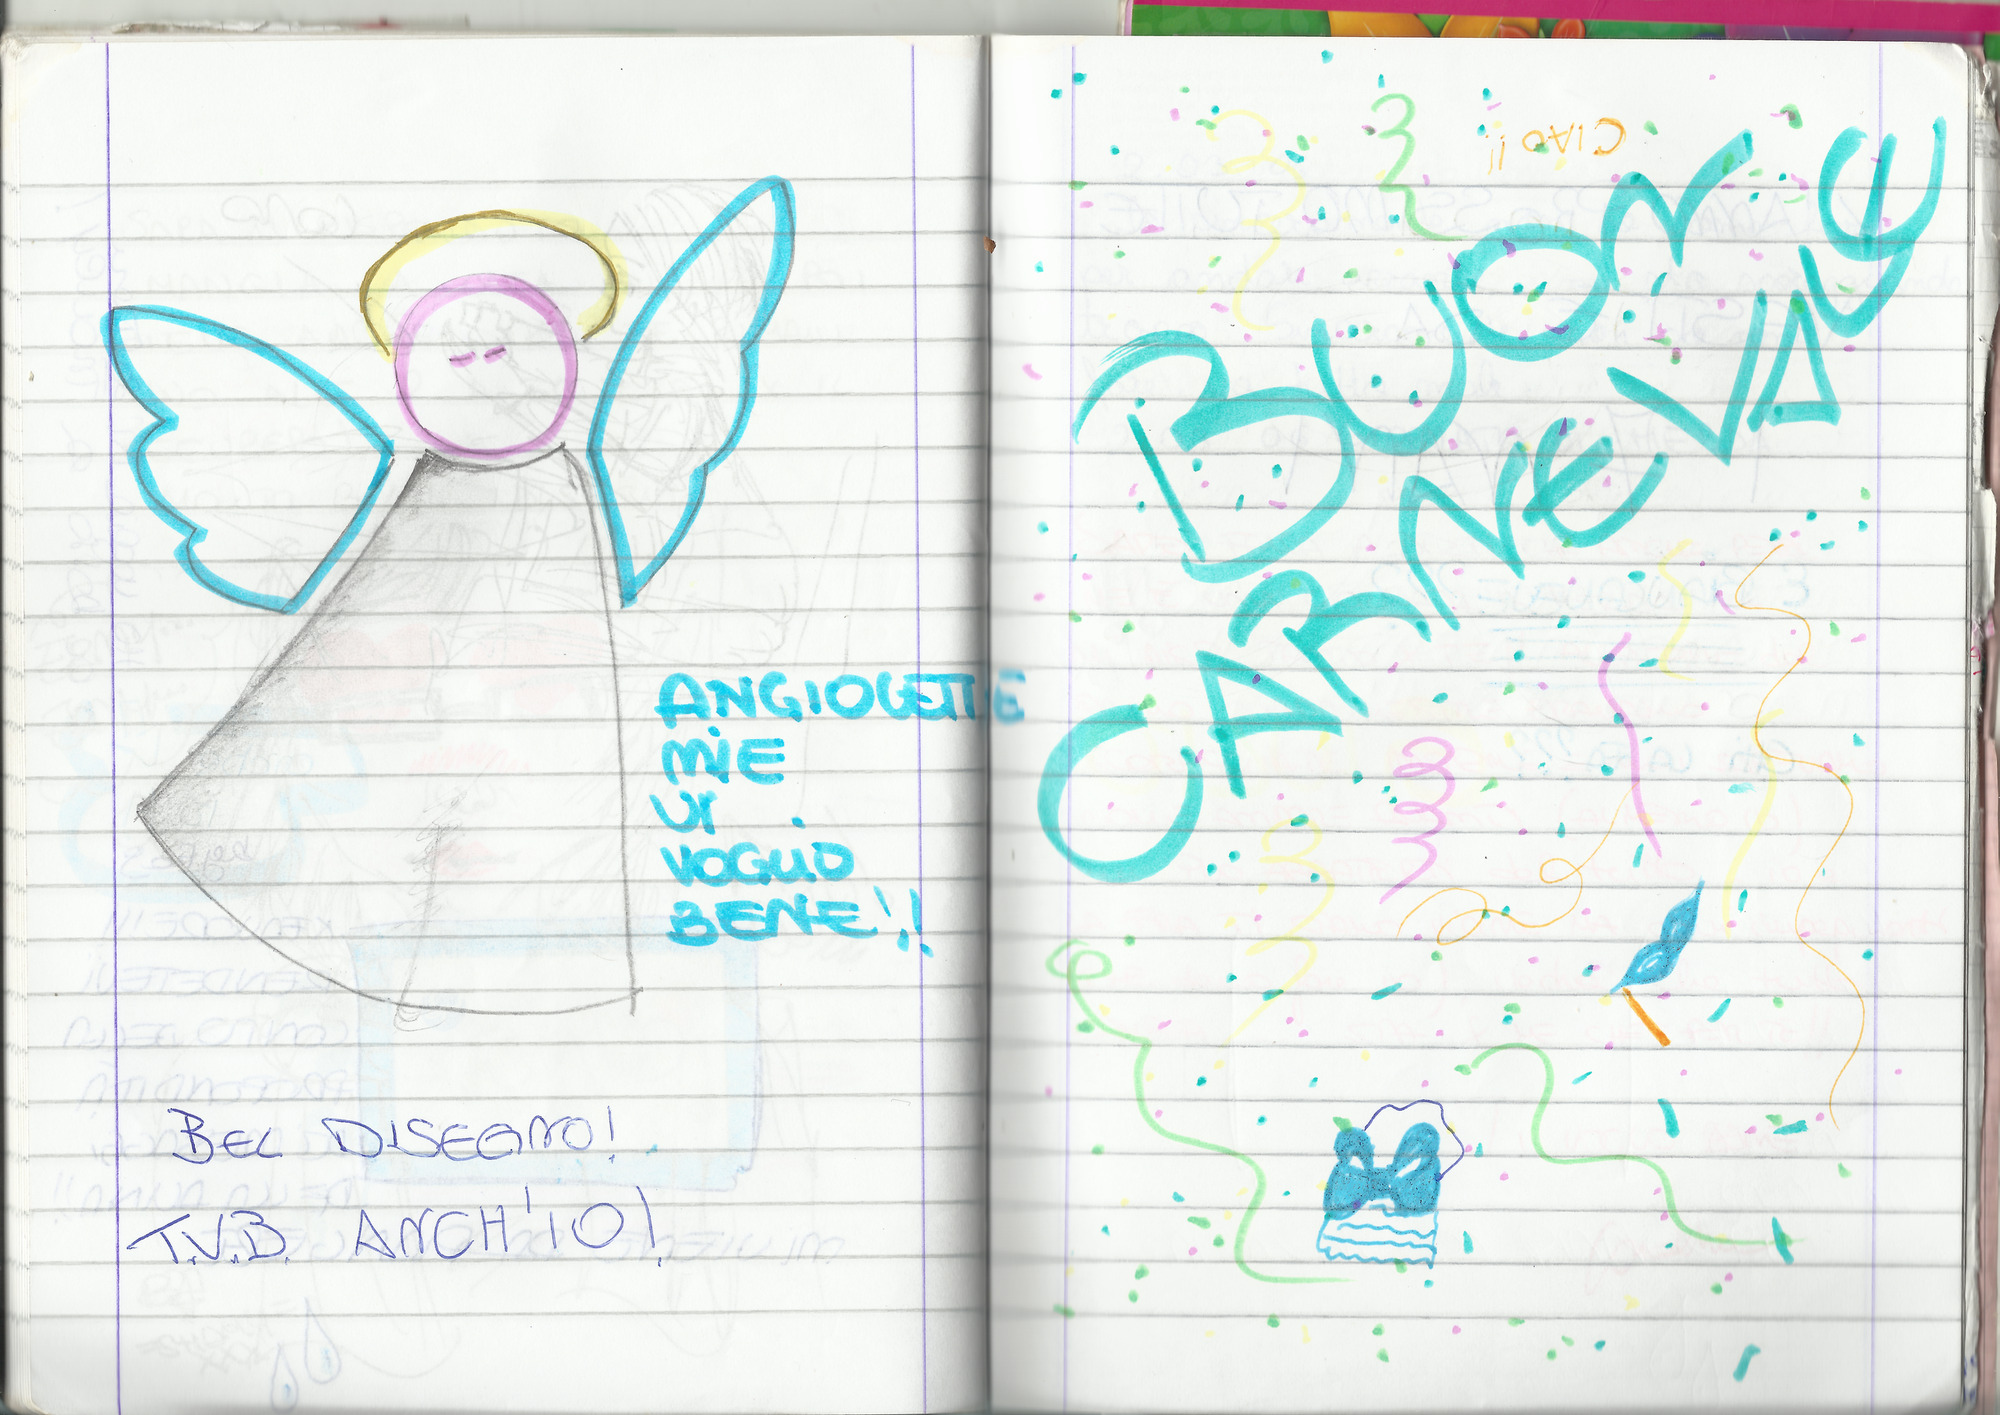 ANGIOLETTE
MIE
VI
VOGLIO
BENE!!
BEL DISEGNO!
T.V.B. ANCH'IO!
CIAO!!
BUON
CARNEVALE